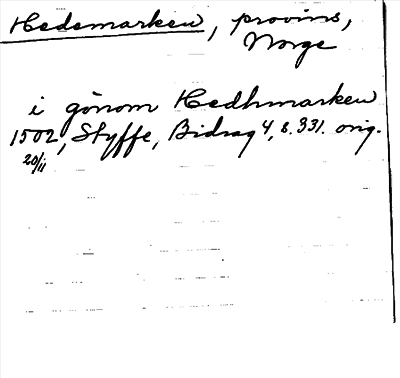 Hedemarken, provins,
Norge
i gönom Hedhmarken
1502, Styffe, Bidrag 4, s. 331. orig.
20/11